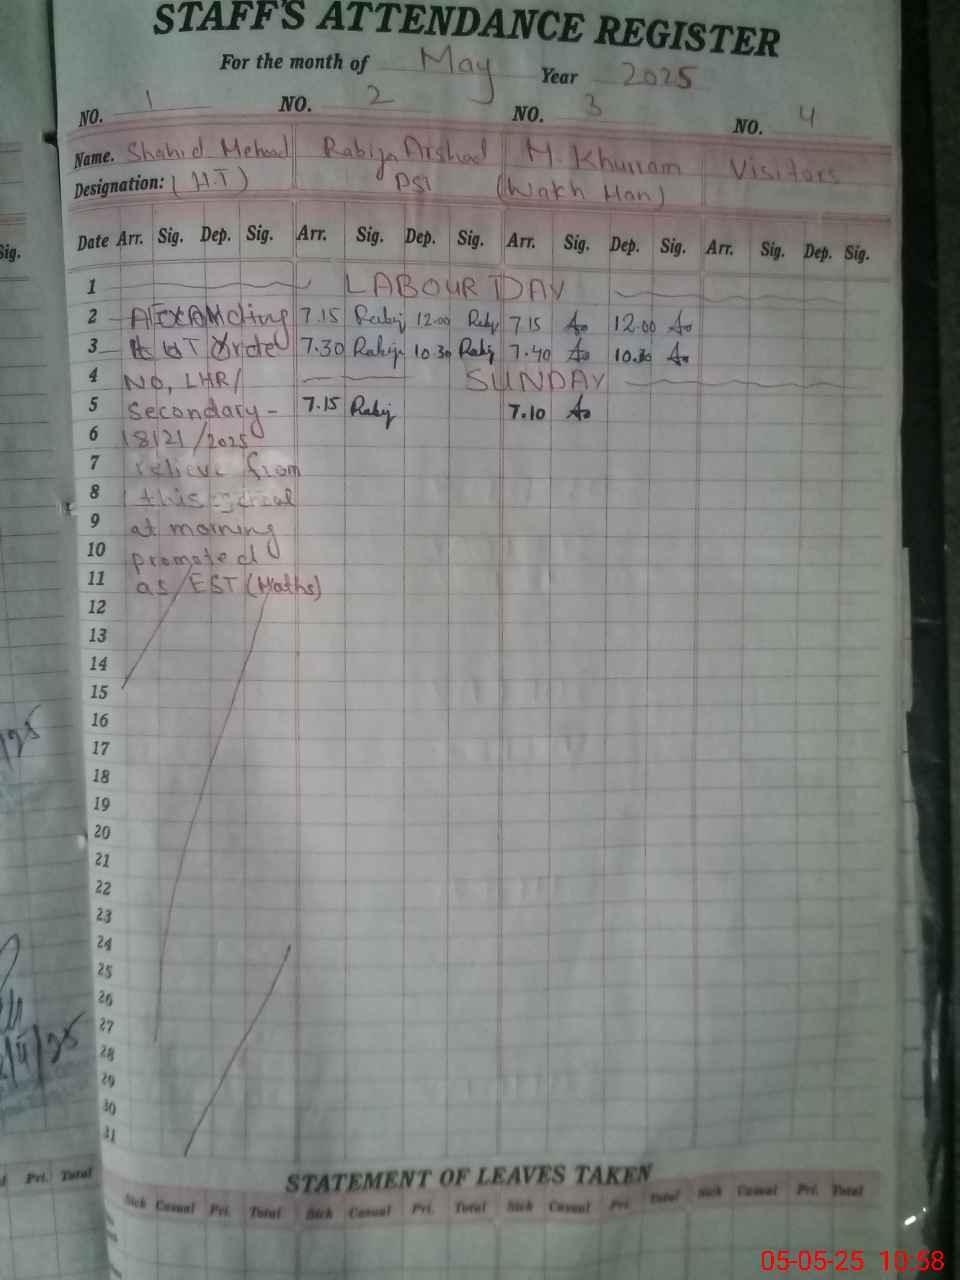 STAFF'S ATTENDANCE REGISTER
For the month of May Year 2025
NO. 1 NO. 2 NO. 3 NO. 4
Name. Shahid Mehood Rabija Arshad M. Khurram Visitors
Designation: (H.T) PST (Watch Man)
Sig. Date Arr. Sig. Dep. Sig. Arr. Sig. Dep. Sig. Arr. Sig. Dep. Sig. Arr. Sig. Dep. Sig.
1 LABOUR DAY
2 7.15 Rabij 12.00 Rabij 7.15 12.00
3 Order 7.30 Rabij 10.30 Rabij 7.40 10.30
4 NO, LHR/ SUNDAY
5 Secondary- 7.15 Rabij 7.10
6 18121/2025
7 relieve from
8 this
9 at morning
10 promoted
11 as EST (Maths)
12
13
14
15
16
17
18
19
20
21
22
23
24
25
26
27
28
29
30
31
STATEMENT OF LEAVES TAKEN
Pri. Total Sick Casual Pri. Total Sick Casual Pri. Total Sick Casual Pri. Total Sick Casual Pri. Total
05-05-25 10:58